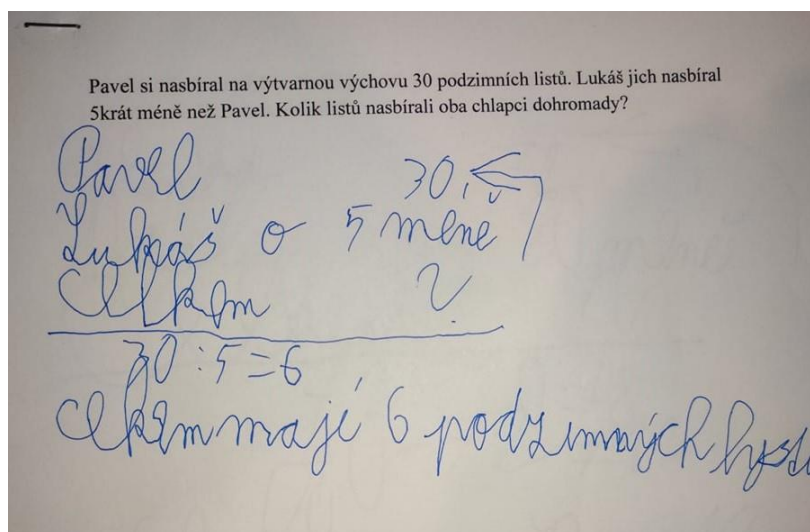 Pavel si nasbíral na výtvarnou výchovu 30 podzimních listů. Lukáš jich nasbíral
5krát méně než Pavel. Kolik listů nasbírali oba chlapci dohromady?
Pavel 30
Lukáš o 5 méně
Celkem ?
30 : 5 = 6
mají 6